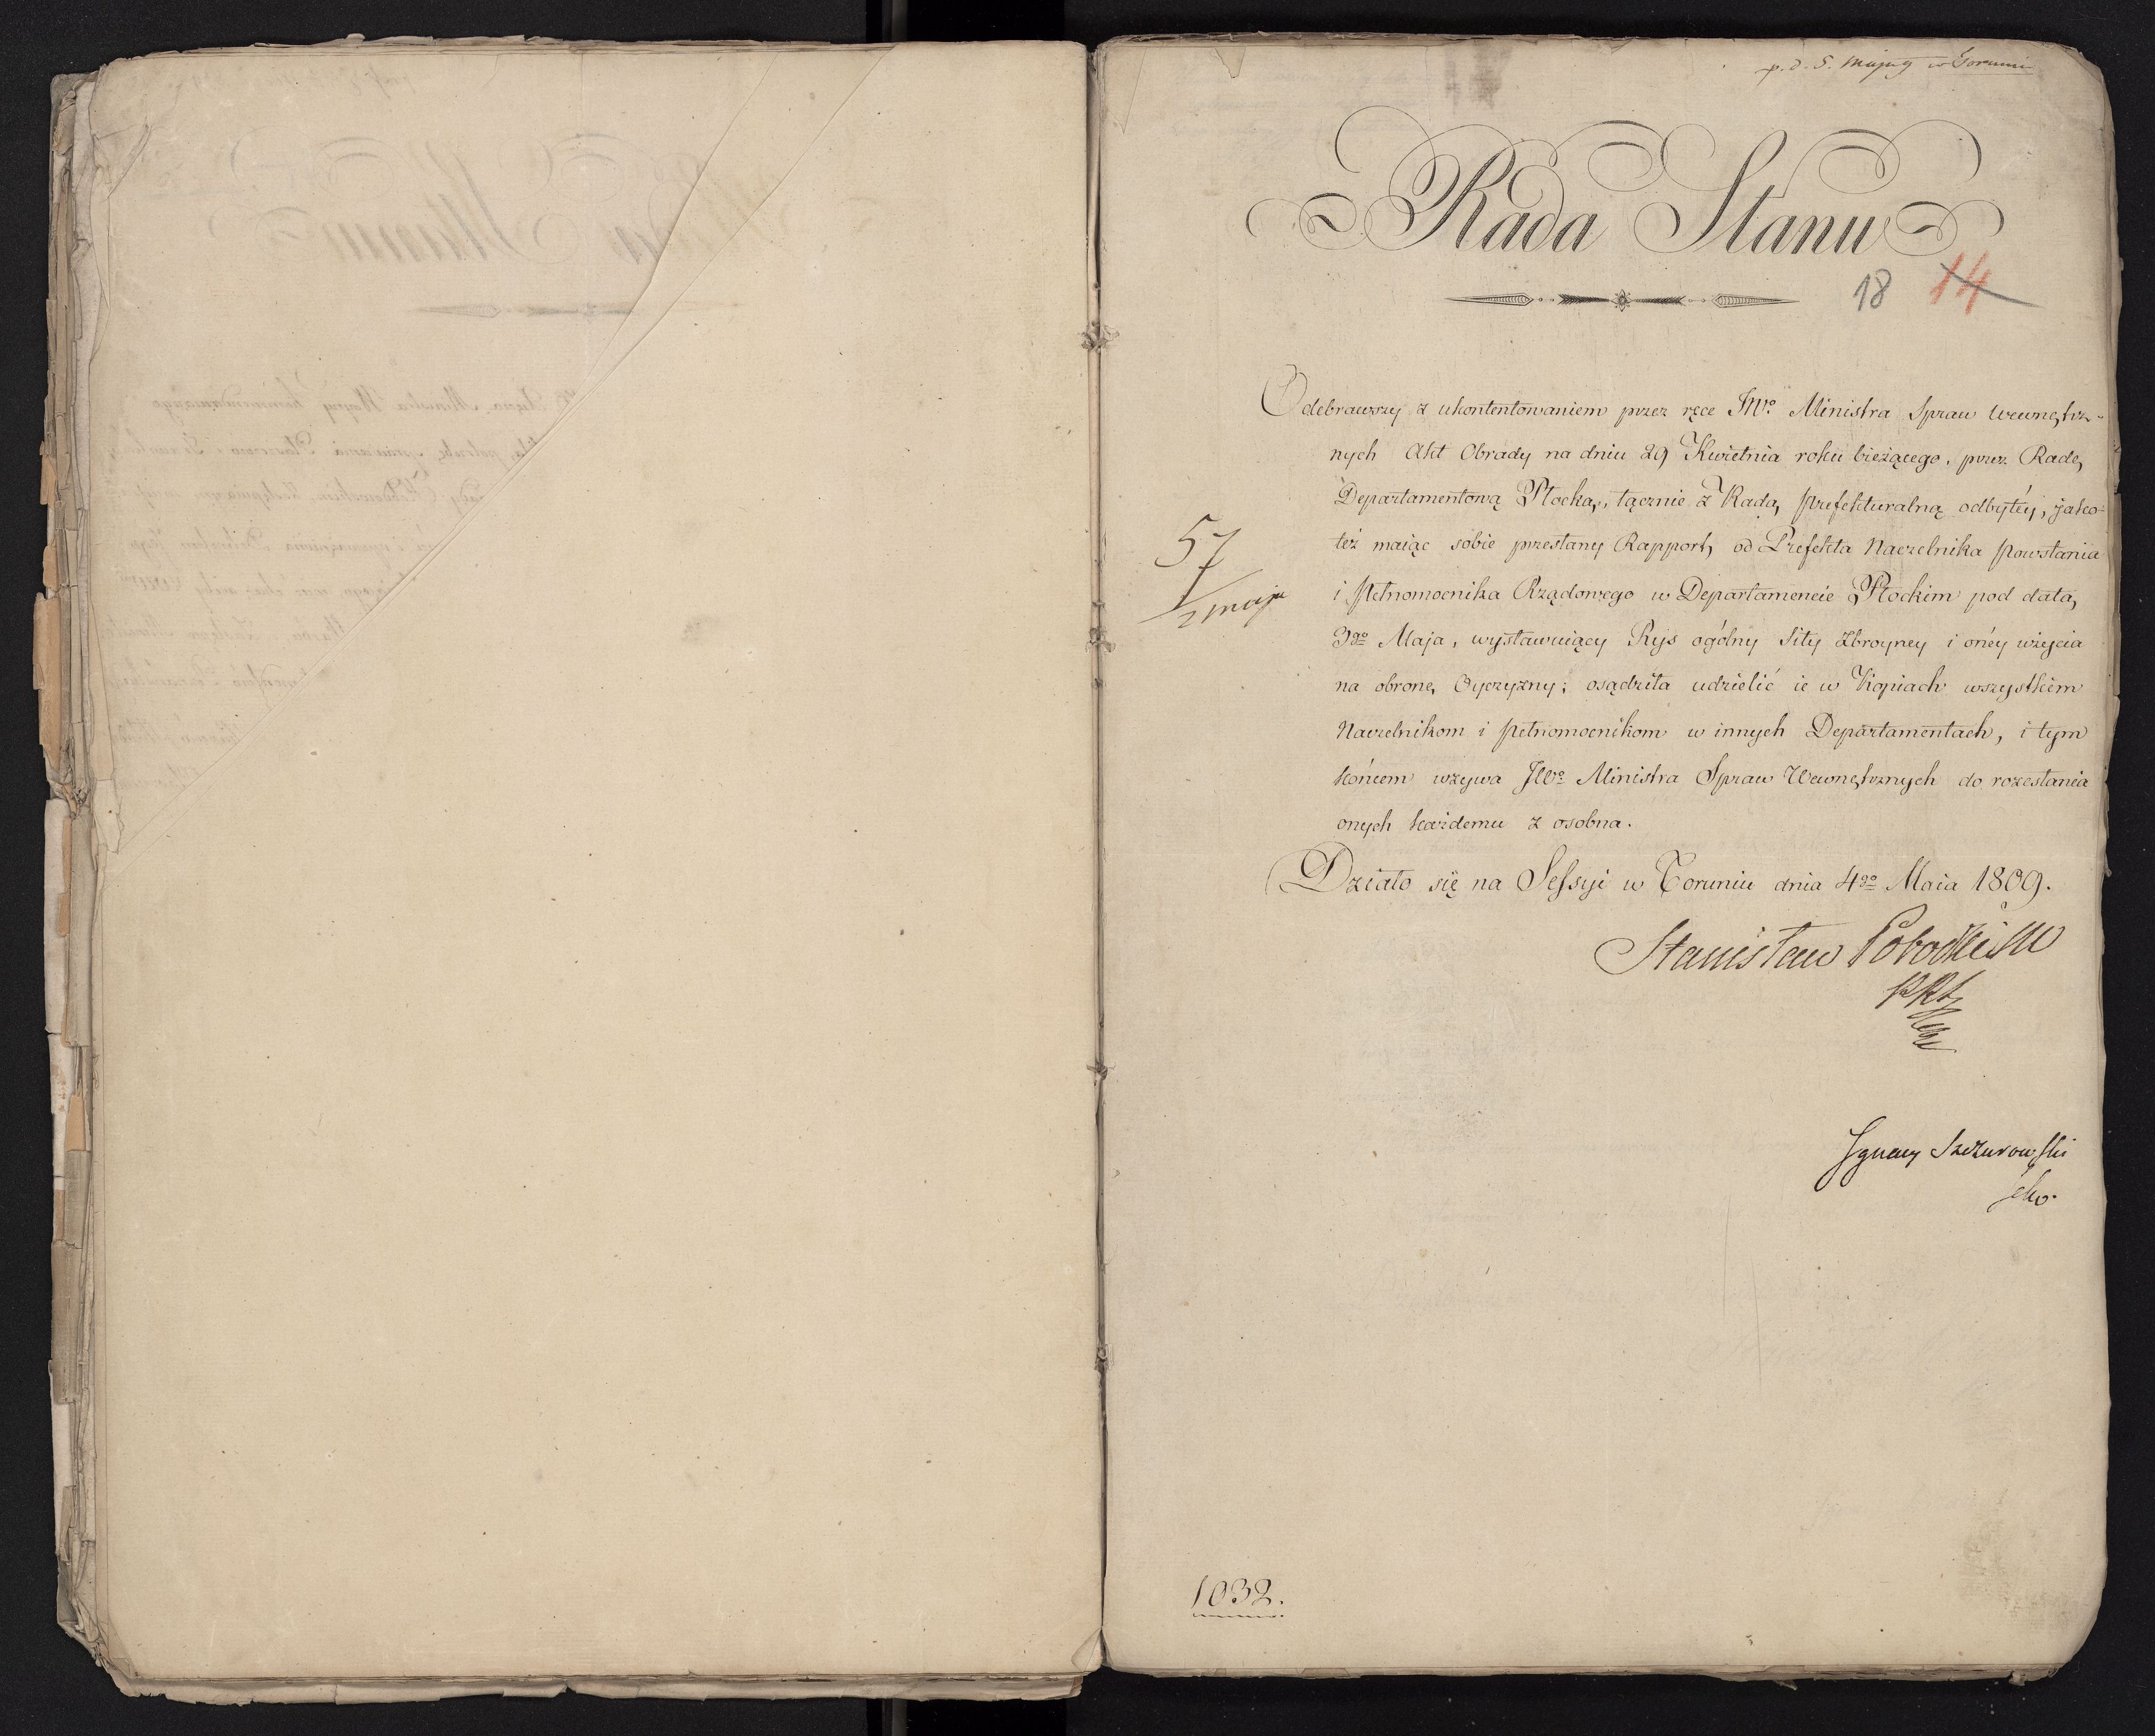 p. d. 5. maja 9 w Toruniu
Rada Stanu
18 14
Odebrawszy z ukontentowaniem przez ręce JWo Ministra Spraw Wewnętrz-
nych Akt Obrady na dniu 29 Kwietnia roku bieżącego, przez Radę
Departamentową Płocką, łącznie z Radą Prefekturalną odbytéy, jako-
też maiąc sobie przesłany Rapport, od Prefekta Naczelnika Powstania
57
i Pełnomocnika Rządowego w Departamencie Płockim pod datą
maja
3go Maja, wystawuiący Rys ogólny Siły Zbroyney i onéy użycia
na obronę Oyczyzny; osądziła udzielić ie w Kopiach wszystkiem
Naczelnikom i Pełnomocnikom w innych Departamentach, i tym
końcem wzywa JWo Ministra Spraw Wewnętrznych do rozesłania
onych każdemu z osobna.
Działo się na Sessyi w Toruniu dnia 4go Maia 1809.
Stanisław Potocki
Ignacy Szczurowski
1032.